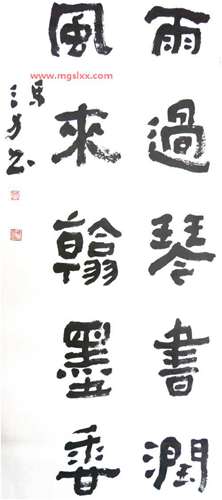 雨過琴書潤
風來翰墨香
馮
www.mgslxx.com